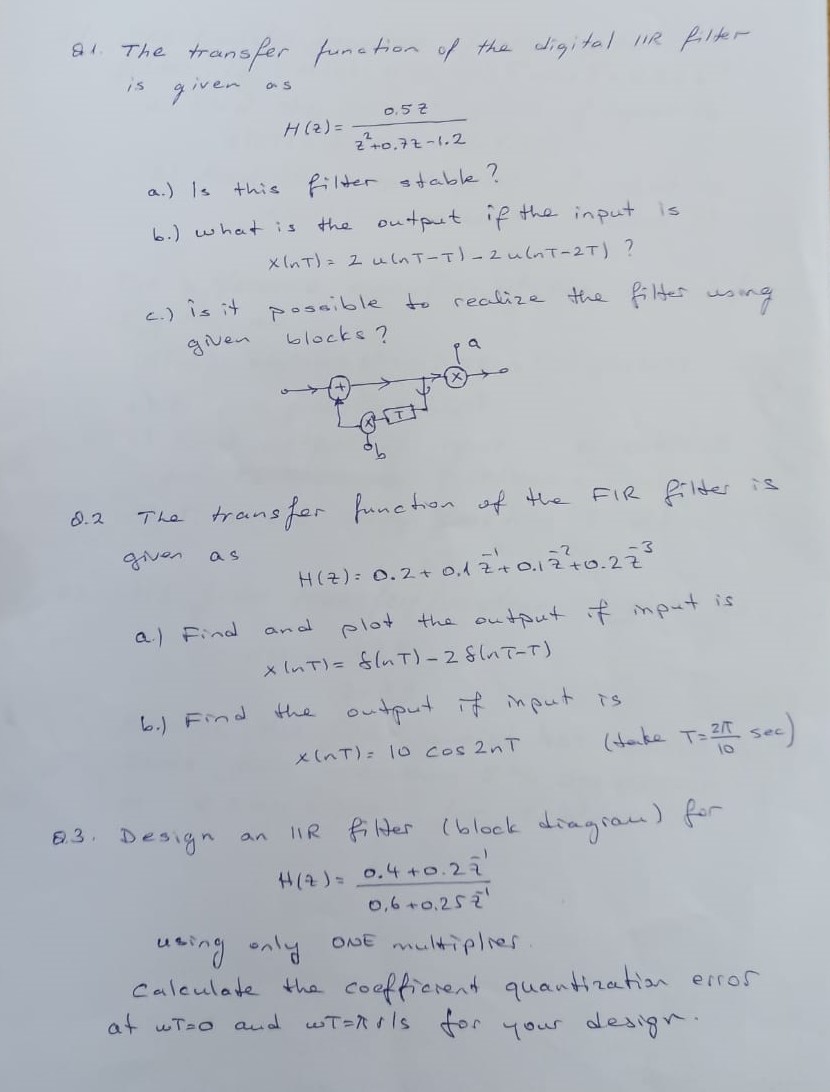 Q1. The transfer function of the digital IIR filter
is given as
H(z) = 0.5z / z²+0.7z-1.2
a.) Is this filter stable?
b.) what is the output if the input is
x(nT) = 2 u(nT-T) - 2 u(nT-2T) ?
c.) is it possible to realize the filter using
given blocks?
a
+ x
x T
b
Q.2 The transfer function of the FIR filter is
given as
H(z) = 0.2 + 0.1 z⁻¹ + 0.1 z⁻² + 0.2 z⁻³
a.) Find and plot the output if input is
x(nT) = δ(nT) - 2 δ(nT-T)
b.) Find the output if input is
x(nT) = 10 cos 2nT (take T = 2π/10 sec)
Q.3. Design an IIR filter (block diagram) for
H(z) = 0.4 + 0.2 z⁻¹ / 0.6 + 0.25 z⁻¹
using only ONE multiplier.
Calculate the coefficient quantization error
at wT=0 and wT=π r/s for your design.